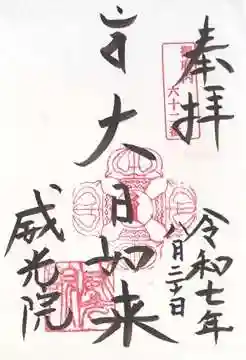 奉拝
御府内
六十二番
令和七年
八月二十日
大日如来
威光院